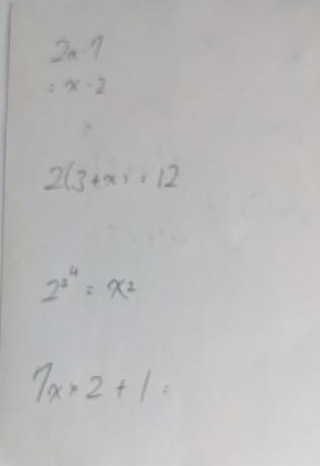 2x-7
= x-2
2(3+x) = 12
2³⁴ = x²
7x × 2 + 1 =